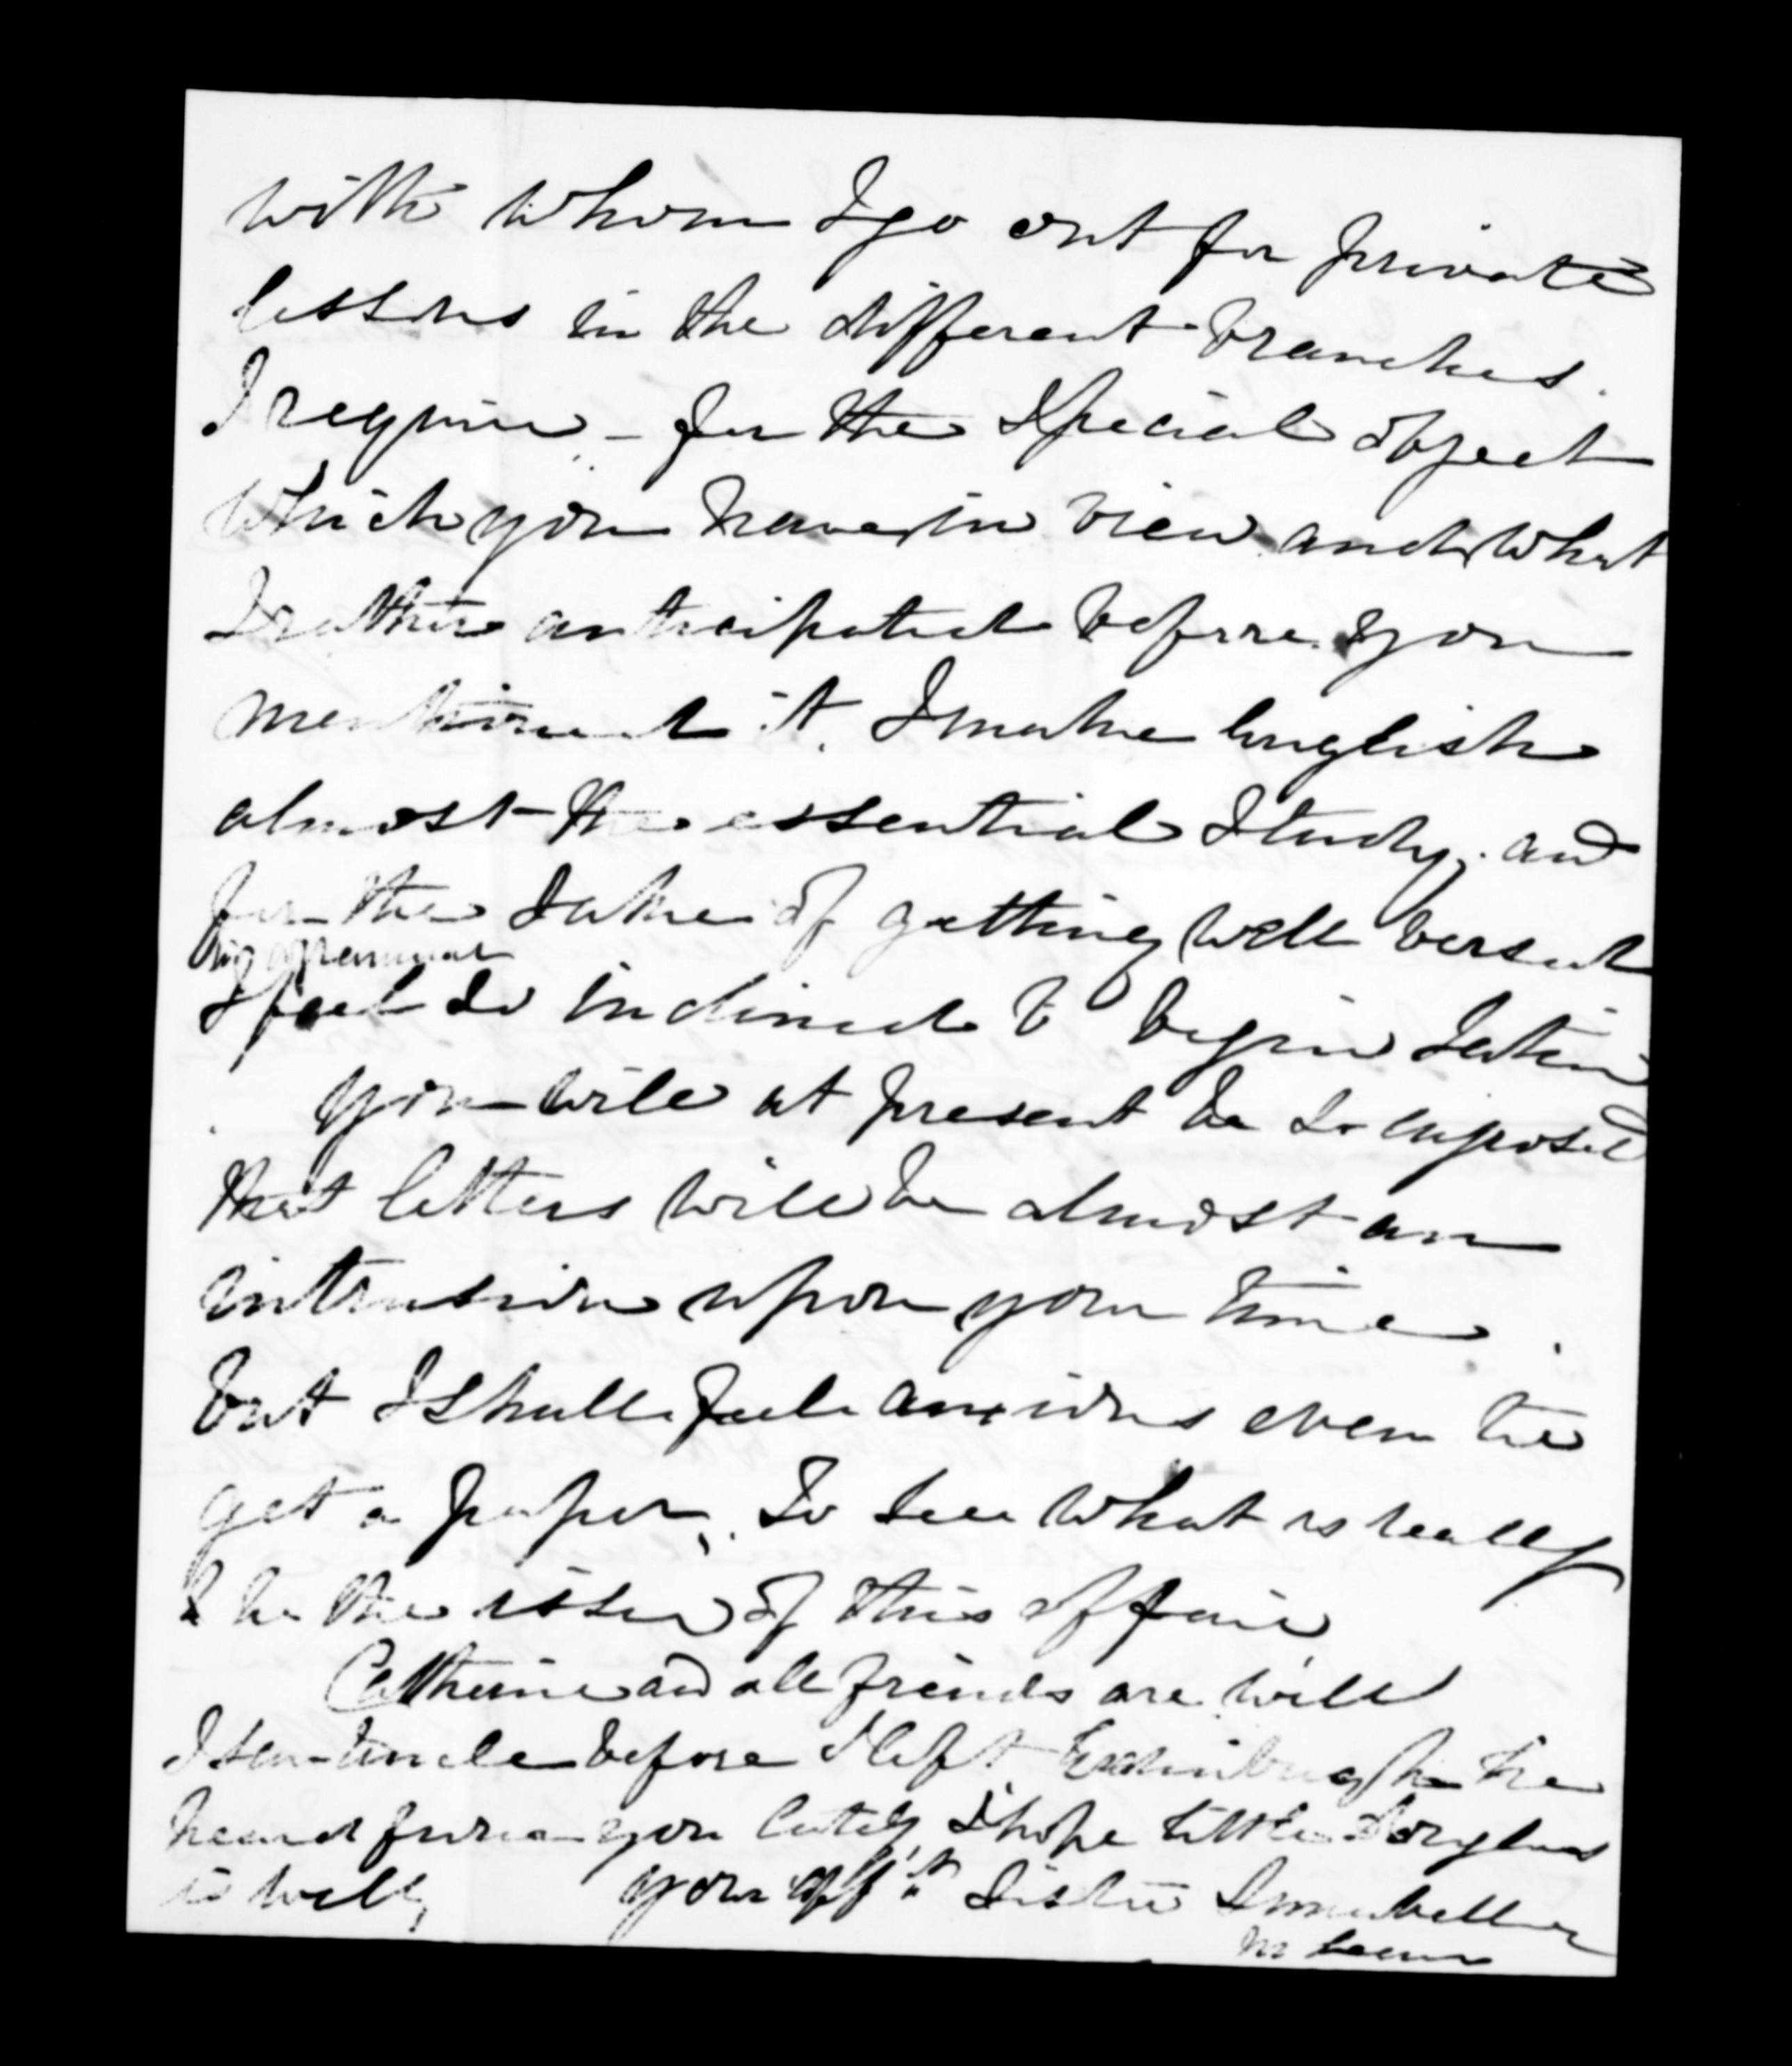 with whom I go out for private
lessons in the different branches.
I require - for the special object
which you have in view and what
I rather anticipated before you
mentioned it. I make English
almost the essential study, and
for the sake of getting well versed
in grammar
I feel so inclined to begin Latin
You will at present be so
that letters will be almost an
intrusion upon your time.
but I shall feel anxious even to
get a paper, to see what is really
to be the issue of this affair
Catherine and all friends are well
I saw Uncle before I left Edinburgh he
heard from you lately, I hope little Douglas
is well, your afft Sister Annabella
McLean